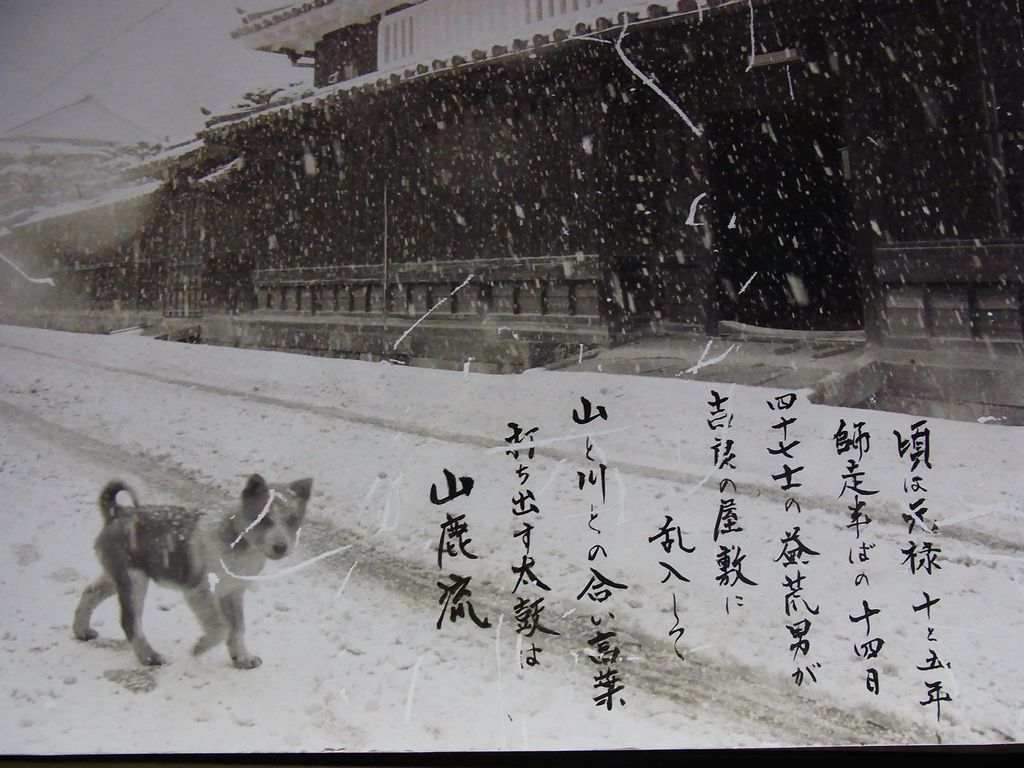 頃は元禄十と五年
師走半ばの十四日
四十七士の益荒男が
吉良の屋敷に
乱入して
山と川との合い言葉
打ち出す太鼓は
山鹿流